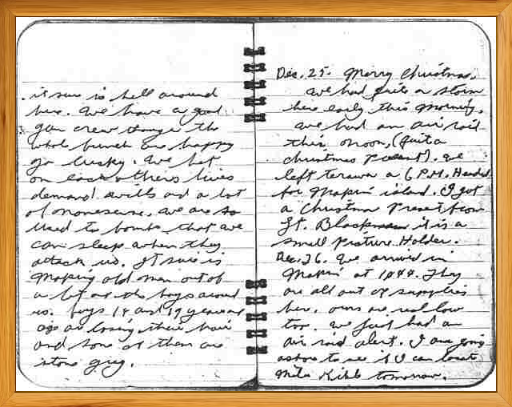 it sure is hell around
here. We have a good
gun crew though the
whole bunch are happy
go lucky. We bet
on each others lives
demand wills and a lot
of nonesense. We are so
used to bombs that we
can sleep when they
attack us. It sure is
making old men out of
a lot of the boys around
us. boys 18 and 19 years
age are losing their hair
and some of them are
stone grey.
Dec. 25. Merry Christmas.
We had quite a storm
here early this morning.
We had an air raid
this noon, (quite a
christmas present). We
left at 6 P.M. Headed
for Makin island. I got
a Christmas Present from
Lt. it is a
small Picture Holder.
Dec. 26. We arrived in
Makin at 10 They
are all out of supplies
here, ours are real low
too. We just had an
air raid alert. I am going
ashore to see if I can locate
tomorrow.